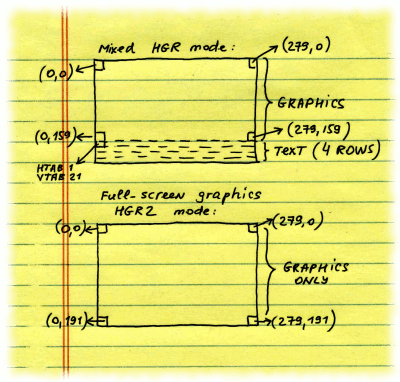 Mixed HGR mode:
(0,0)
(279,0)
GRAPHICS
(0,159)
(279,159)
TEXT (4 ROWS)
HTAB 1
VTAB 21
Full-screen graphics
HGR2 mode:
(0,0)
(279,0)
GRAPHICS
ONLY
(0,191)
(279,191)